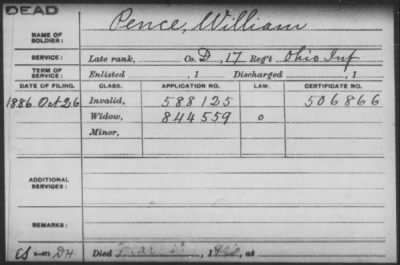 DEAD
Pence, William
NAME OF SOLDIER:
SERVICE: Late rank, Co. D, 17 Reg't Ohio Inf
TERM OF SERVICE: Enlisted , 1 Discharged , 1
DATE OF FILING. CLASS. APPLICATION NO. LAW. CERTIFICATE NO.
1886 Oct 26 Invalid, 588125 506866
Widow, 844559 o
Minor,
ADDITIONAL SERVICES:
REMARKS:
Died , 1 , at